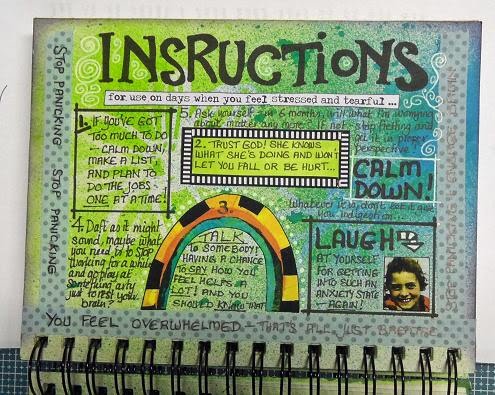 INSRUCTiONS
for use on days when you feel stressed and tearful ...
STOP PANICKING STOP PANICKING
1. IF YOU'VE GOT
TOO MUCH TO DO
- CALM DOWN,
MAKE A LIST,
AND PLAN TO
DO THE JOBS -
ONE AT A TIME!
5. Ask yourself - in 6 months, will what I'm worrying
about matter any more? If not - stop fretting and
get it in proper
perspective!
2. TRUST GOD! SHE KNOWS
WHAT SHE'S DOING AND WON'T
LET YOU FALL OR BE HURT...
CALM
DOWN!
Whatever it is, don't let it give
you indigestion...
3.
TALK
to SOMEBODY!
HAVING A CHANCE
TO SAY HOW YOU
FEEL HELPS A
LOT! AND YOU
SHOULD KNOW THAT
4. Daft as it might
sound, maybe what
you need is to STOP
working for a while
and go play at
something arty
just to rest your
brain?
LAUGH
AT YOURSELF
FOR GETTING
INTO SUCH AN
ANXIETY STATE
- AGAIN!
YOU FEEL OVERWHELMED - THAT'S ALL JUST BREATHE